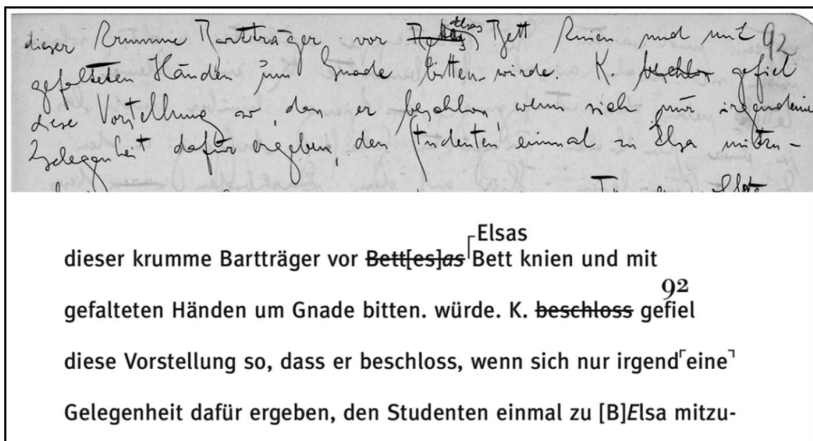 dieser krumme Bartträger vor Bett[es]as Elsas Bett knien und mit 92
gefalteten Händen um Gnade bitten. würde. K. beschloss gefiel
diese Vorstellung so, dass er beschloss, wenn sich nur irgendeine
Gelegenheit dafür ergeben, den Studenten einmal zu Elsa mitzu-
Elsas
dieser krumme Bartträger vor Bett[es]as⌈Bett knien und mit
92
gefalteten Händen um Gnade bitten. würde. K. beschloss gefiel
diese Vorstellung so, dass er beschloss, wenn sich nur irgend⌈eine⌉
Gelegenheit dafür ergeben, den Studenten einmal zu [B]Elsa mitzu-